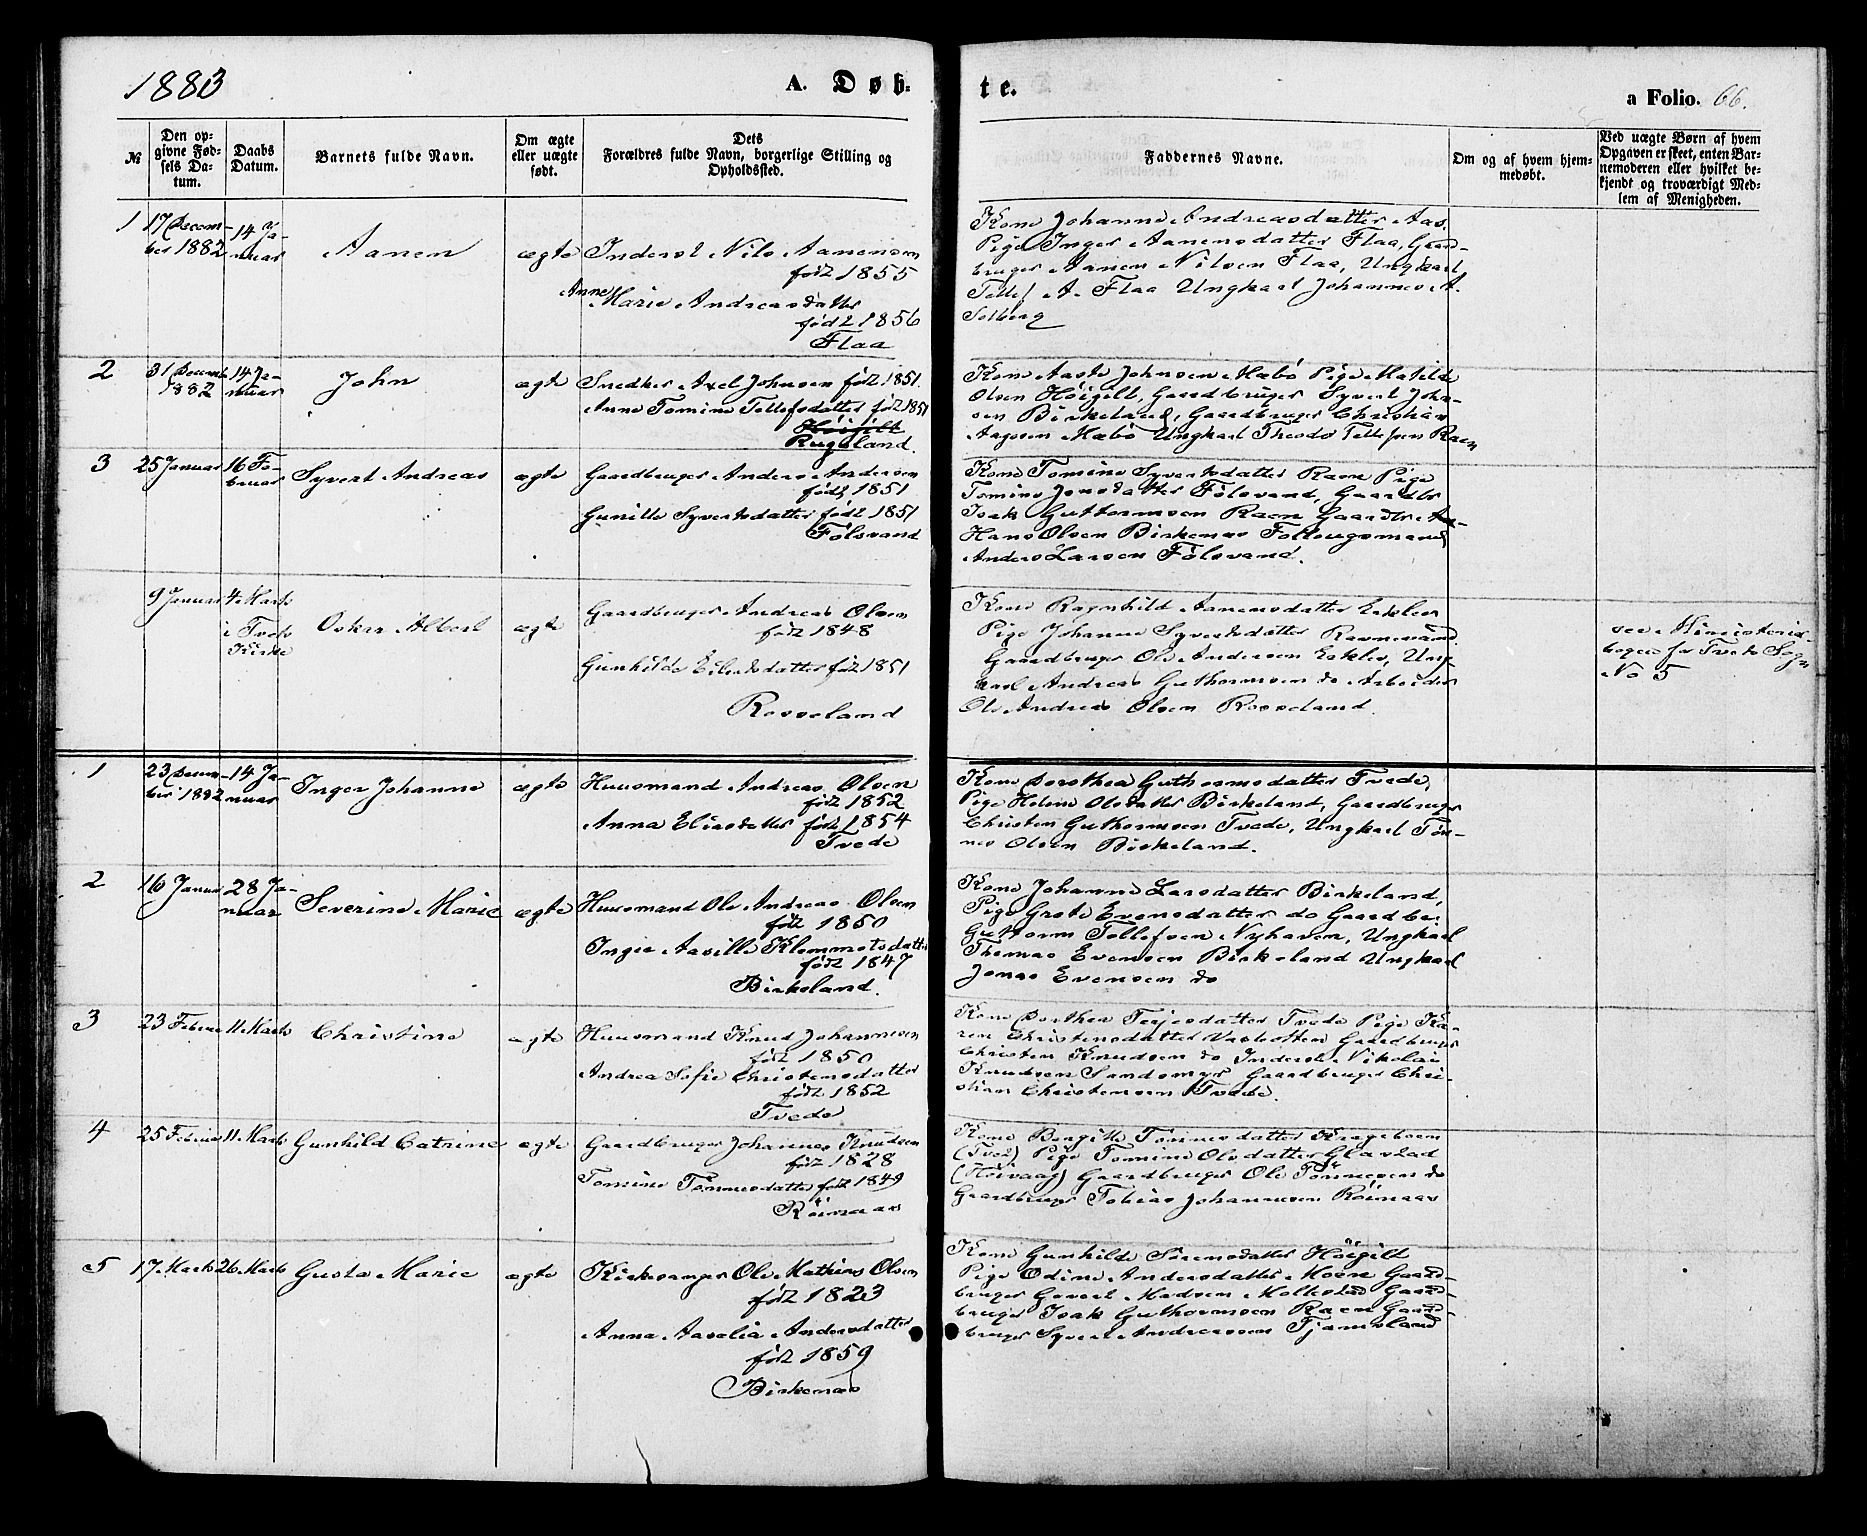 1883
A. Døb-
te.
a Folio. 66.
№
Den op-
givne Fød-
sels Da-
tum.
Daabs
Datum.
Barnets fulde Navn.
Om ægte
eller uægte
født.
Dets
Forældres fulde Navn, borgerlige Stilling og
Opholdssted.
Faddernes Navne.
Om og af hvem hjem-
medøbt.
Ved uægte Børn af hvem
Opgaven er skeet, enten Bar-
nemoderen eller hvilket be-
kjendt og troværdigt Med-
lem af Menigheden.
1
17 Decem-
ber 1882
14 Ja-
nuar
Aanen
ægte
Inderst Nils Aanensen
født 1855
Anne
Marie Andreasdatter
født 1856
Flaa
Kone Johanne Andreasdatter Aas.
Pige Inger Aanensdatter Flaa, Gaard-
bruger Aanen Nilsen Flaa, Ungkarl
Tellef A. Flaa Ungkarl Johannes A.
Solberg
2
31 Decemb
1882
14 Ja-
nuar
John
ægte
Snedker Axel Johnsen født 1851.
Anne Tomine Tellefsdatter født 1851
Høigilt
Rugsland.
Kone Aaste Johnsen Mæbø Pige Matilde
Olsen Höigilt, Gaardbruger Syvert John-
sen Birkeland, Gaardbruger Christian
Aagesen Mæbø Ungkarl Theodo Tellefsen Raen
3
25 Januar
16 Fe-
bruar
Syvert Andreas
ægte
Gaardbruger Anders Andersen
født 1851
Gunille Syvertsdatter født 1851
Fölsvand
Kone Tomine Syvertsdatter Raen Pige
Tomine Jensdatter Fölsvand, Gaardbr
Isak Guttormsen Raen Gaardbr
Hans Olsen Birkenes Follaugsmand
Anders Larsen Fölsvand.
9 Januar
4 Marts
i Tveds
Kirke
Oskar Albert
ægte
Gaardbruger Andreas Olsen
født 1848
Gunhilde Eilertsdatter født 1851
Rosseland
Kone Ragnhild Aanensdatter Eskelev
Pige Johanne Syvertsdatter Ravnevand
Gaardbruger Ole Andersen Eskelev, Ung-
karl Andreas Guthormsen do Arbeider
Ole Andreas Olsen Rosseland.
see Ministerial-
bogen for Tveds Sogn
No 5
1
23 Decem-
ber 1882
14 Ja-
nuar
Inger Johanne
ægte
Huusmand Andreas Olsen
født 1852
Anna Eliasdatter født 1854
Tvede
Kone Dorothea Guthormsdatter Tvede,
Pige Helene Olsdatter Birkeland, Gaardbruger
Christen Guthormsen Tvede, Ungkarl Tøn-
nes Olsen Birkeland.
2
16 Januar
28 Ja-
nuar
Severine Marie
ægte
Huusmand Ole Andreas Olsen
født 1850
Ingie Aasille Klemmetsdatter
født 1847
Birkeland.
Kone Johanne Larsdatter Birkeland,
Pige Grete Evensdatter do Gaardbr.
Guttorm Tellefsen Nyhaven, Ungkarl
Thomas Evensen Birkeland Ungkarl
Jonas Evensen do
3
23 Februar
11 Marts
Christine
ægte
Huusmand Knud Johannesen
født 1850
Andrea Sofie Christensdatter
født 1852
Tvede
Kone Dorthea Terjesdatter Tvede Pige Ka-
ren Christensdatter Gaardbruger
Christen Knudsen do Inderst Nikolai
Knudsen Sandemyr Gaardbruger Chri-
stian Christensen Tvede.
4
25 Februar
11 Marts
Gunhild Catrine
ægte
Gaardbruger Johannes Knudsen
født 1828
Tomine Tönnesdatter født 1849
Röinaas
Kone Bergitte Tönnesdatter Krageboen
(Tved) Pige Tomine Olsdatter Glastad
(Höivaag) Gaardbruger Ole Tönnesen do
Gaardbruger Tobias Johannesen Röinaas
5
17 Marts
26 Marts
Gusta Marie
ægte
Kirkesanger Ole Mathias Olsen
født 1823
Anna Aasalia Andersdatter
født 1859
Birkenes
Kone Gunhilde Sörensdatter Höigilt
Pige Odine Andersdatter Moen Gaard-
bruger Gevert Madsen Mollestad Gaard-
bruger Isak Guthormsen Raen Gaard-
bruger Syvert Andreassen Tjamsland